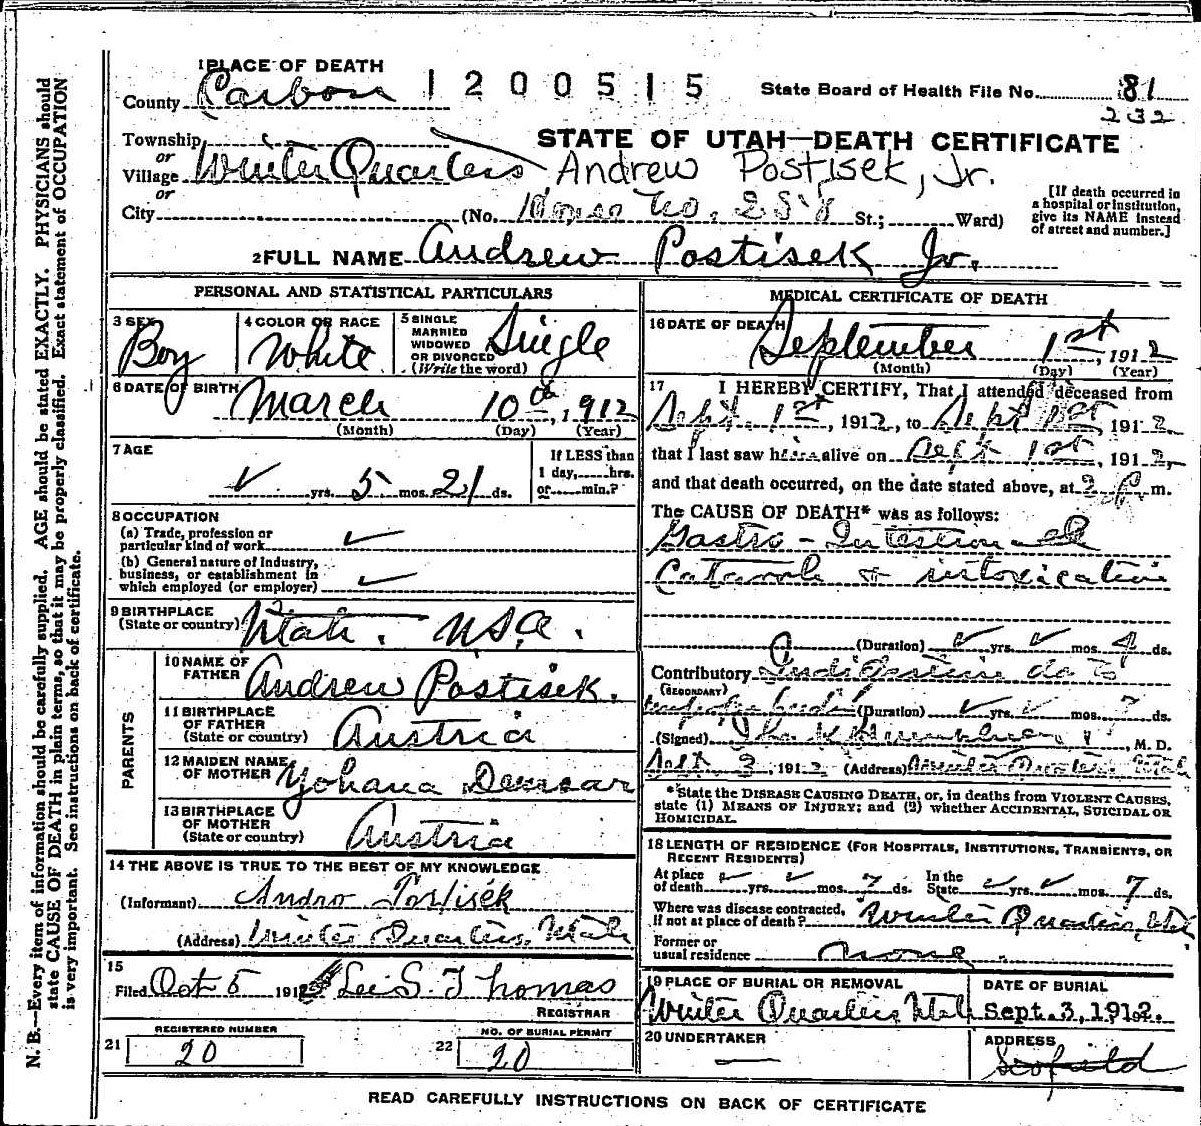 1 PLACE OF DEATH
County Carbon 1200515 State Board of Health File No. 81
232
Township
or
Village Winter Quarters
STATE OF UTAH—DEATH CERTIFICATE
Andrew Postisek, Jr.
or
City (No. House No. 258 St.; Ward)
[If death occurred in a hospital or institution, give its NAME instead of street and number.]
2 FULL NAME Andrew Postisek Jr.
PERSONAL AND STATISTICAL PARTICULARS
3 SEX Boy
4 COLOR OR RACE White
5 SINGLE MARRIED WIDOWED OR DIVORCED (Write the word) Single
6 DATE OF BIRTH March 10th, 1912
(Month) (Day) (Year)
7 AGE
✓ yrs. 5 mos. 21 ds.
If LESS than 1 day, hrs. or min.?
8 OCCUPATION
(a) Trade, profession or particular kind of work ✓
(b) General nature of Industry, business, or establishment in which employed (or employer) ✓
9 BIRTHPLACE (State or country) Utah. USA.
PARENTS
10 NAME OF FATHER Andrew Postisek.
11 BIRTHPLACE OF FATHER (State or country) Austria
12 MAIDEN NAME OF MOTHER Yohana Demsar
13 BIRTHPLACE OF MOTHER (State or country) Austria
14 THE ABOVE IS TRUE TO THE BEST OF MY KNOWLEDGE
(Informant) Andro Postisek
(Address) Winter Quarters, Utah
15
Filed Oct 5 1912 Lee S. Thomas
REGISTRAR
21 REGISTERED NUMBER 20
22 NO. OF BURIAL PERMIT 20
MEDICAL CERTIFICATE OF DEATH
16 DATE OF DEATH September 1st, 1912
(Month) (Day) (Year)
17 I HEREBY CERTIFY, That I attended deceased from
Sept. 1st, 1912, to Sept 1st, 1912
that I last saw him alive on Sept 1st, 1912,
and that death occurred, on the date stated above, at 2 P m.
The CAUSE OF DEATH* was as follows:
Gastro-Intestinal
Catarrh & intoxication
(Duration) ✓ yrs. ✓ mos. 4 ds.
Contributory Indigestion due to
(SECONDARY)
improper feeding (Duration) ✓ yrs. ✓ mos. 7 ds.
(Signed) M. D.
Sept 3, 1912 (Address) Winter Quarters Utah
*State the DISEASE CAUSING DEATH, or, in deaths from VIOLENT CAUSES, state (1) MEANS OF INJURY; and (2) whether ACCIDENTAL, SUICIDAL OR HOMICIDAL.
18 LENGTH OF RESIDENCE (FOR HOSPITALS, INSTITUTIONS, TRANSIENTS, OR RECENT RESIDENTS)
At place of death ✓ yrs. ✓ mos. 7 ds. In the State ✓ yrs. ✓ mos. 7 ds.
Where was disease contracted, If not at place of death? Winter Quarters, Utah
Former or usual residence none.
19 PLACE OF BURIAL OR REMOVAL Winter Quarters Utah
DATE OF BURIAL Sept. 3, 1912.
20 UNDERTAKER —
ADDRESS Scofield
READ CAREFULLY INSTRUCTIONS ON BACK OF CERTIFICATE
N. B.—Every item of information should be carefully supplied. AGE should be stated EXACTLY. PHYSICIANS should
state CAUSE OF DEATH in plain terms, so that it may be properly classified. Exact statement of OCCUPATION
is very important. See instructions on back of certificate.